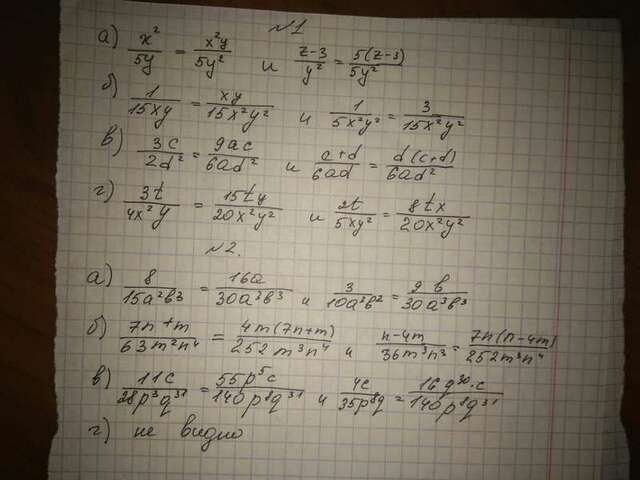 №1
а) x²/5y = x²y/5y² и z-3/y² = 5(z-3)/5y²
б) 1/15xy = xy/15x²y² и 1/5x²y² = 3/15x²y²
в) 3c/2d² = 9ac/6ad² и c+d/6ad = d(c+d)/6ad²
г) 3t/4x²y = 15ty/20x²y² и 2t/5xy² = 8tx/20x²y²
№2.
а) 8/15a²b³ = 16a/30a³b³ и 3/10a³b² = 9b/30a³b³
б) 7n+m/63m²n⁴ = 4m(7n+m)/252m³n⁴ и n-4m/36m³n³ = 7n(n-4m)/252m³n⁴
в) 11c/28p³q³¹ = 55p⁵c/140p⁸q³¹ и 4c/35p⁸q = 16q³⁰·c/140p⁸q³¹
г) не видно